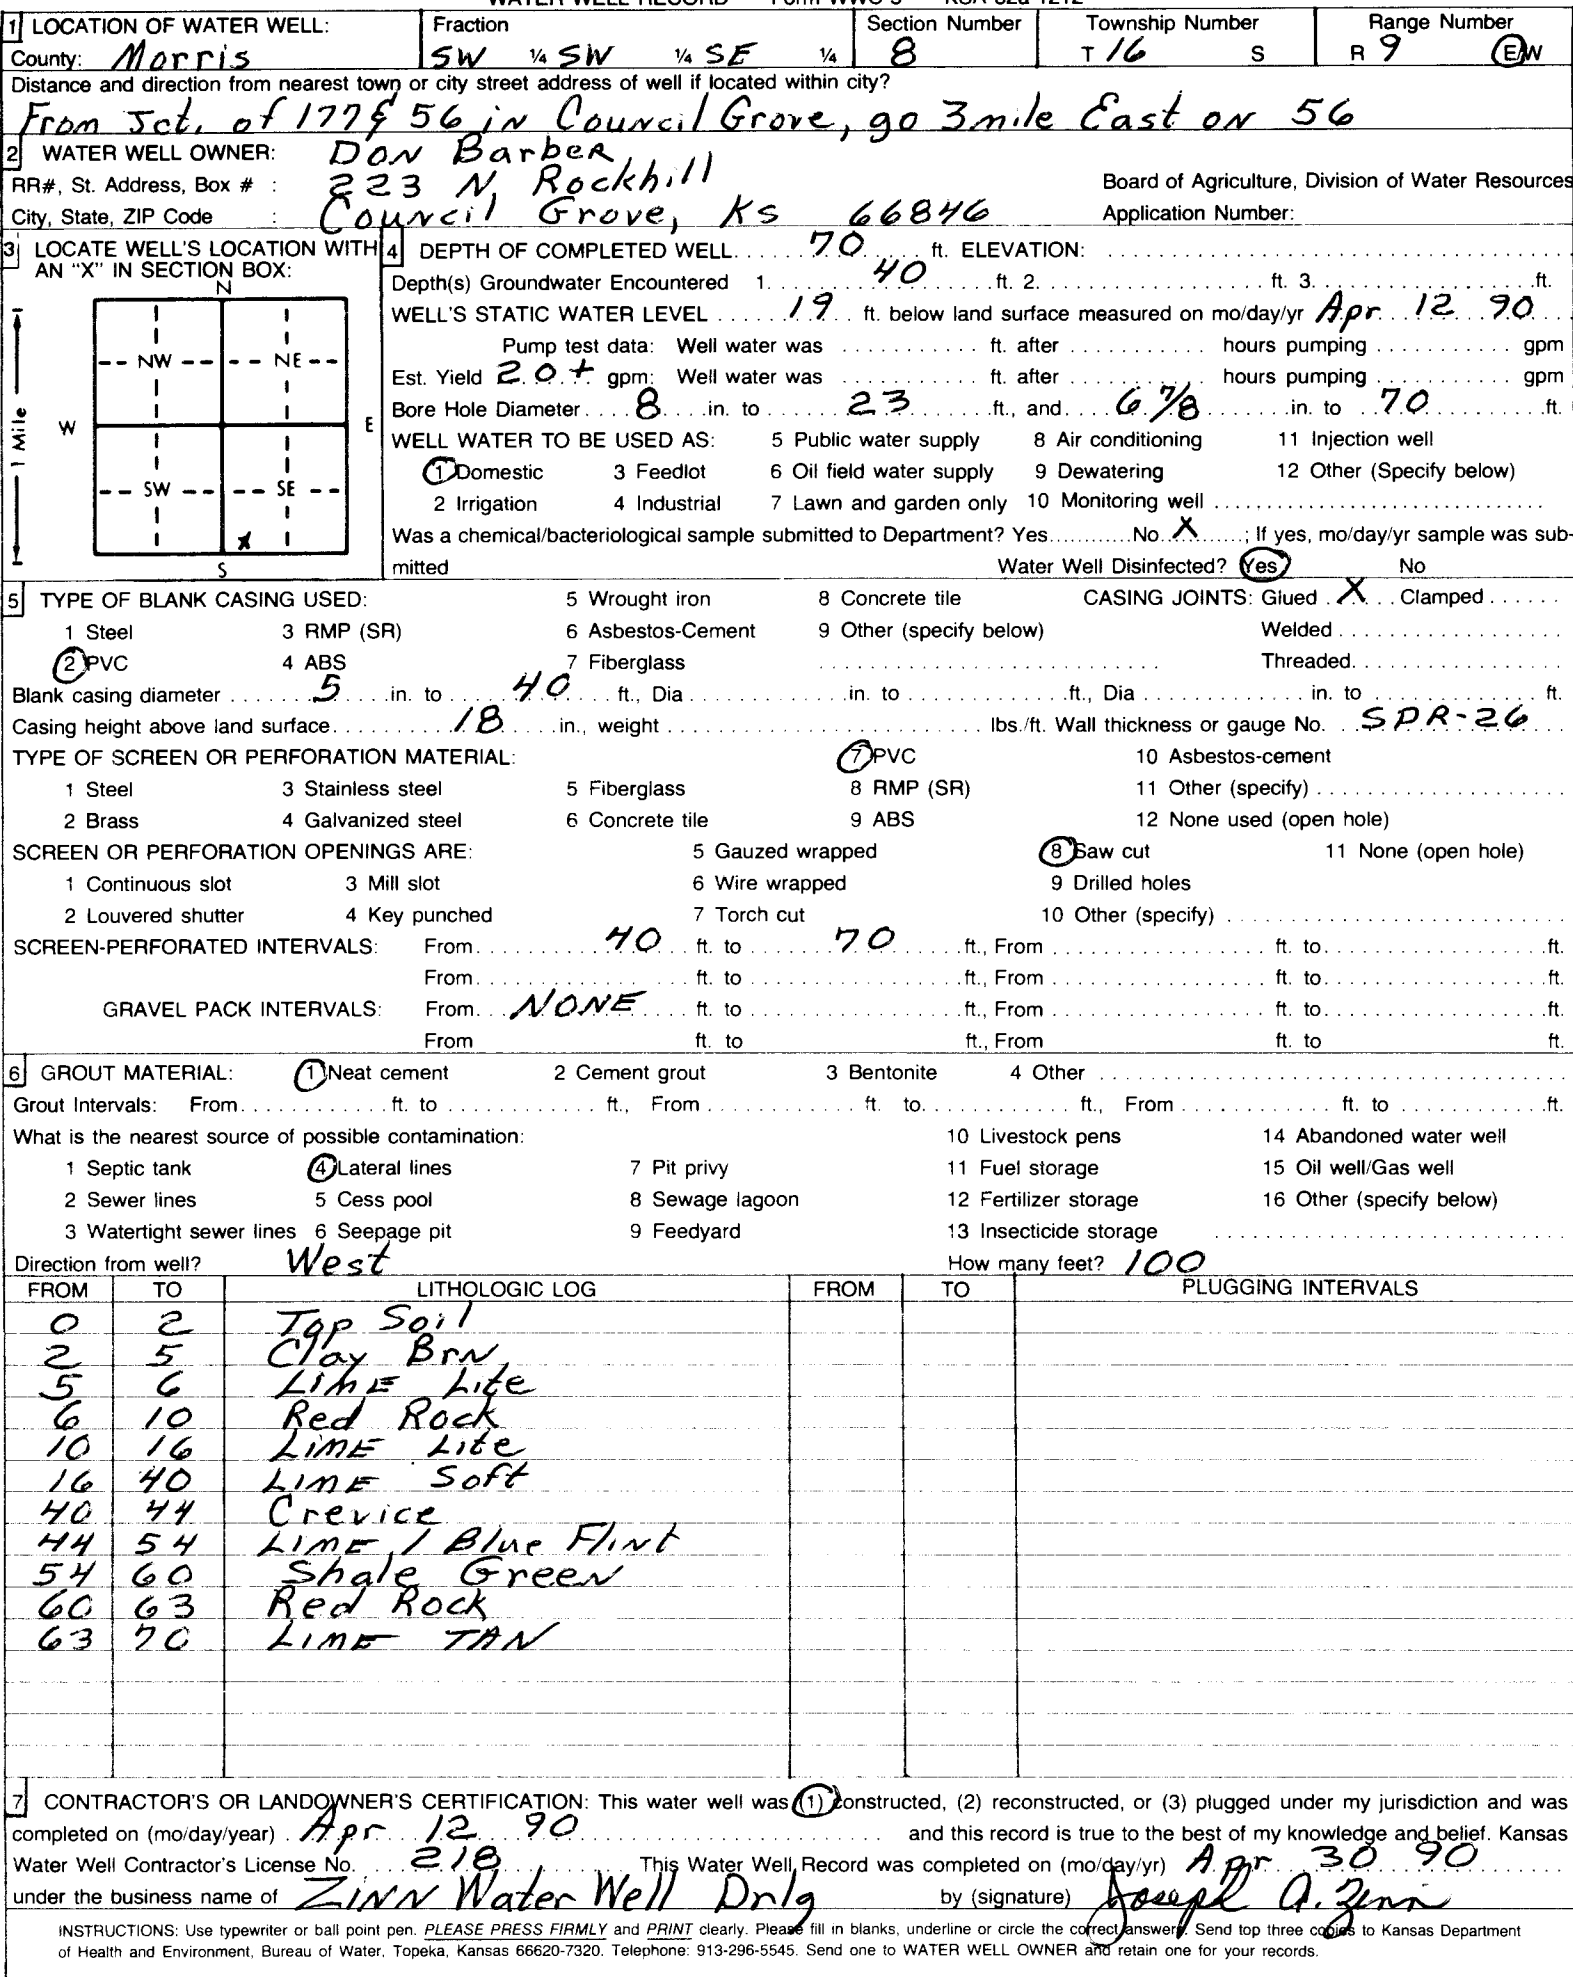 WATER WELL RECORD Form WWC-5 KSA 82a-1212
1 LOCATION OF WATER WELL: Fraction Section Number Township Number Range Number
County: Morris SW ¼ SW ¼ SE ¼ 8 T 16 S R 9 E/W
Distance and direction from nearest town or city street address of well if located within city?
From Jct. of 177 & 56 in Council Grove, go 3 mile East on 56
2 WATER WELL OWNER: Don Barber
RR#, St. Address, Box # : 223 N. Rockhill Board of Agriculture, Division of Water Resources
City, State, ZIP Code : Council Grove, Ks 66846 Application Number:
3 LOCATE WELL'S LOCATION WITH AN "X" IN SECTION BOX:
N
NW NE
W E
SW SE
X
S
1 Mile
4 DEPTH OF COMPLETED WELL 70 ft. ELEVATION:
Depth(s) Groundwater Encountered 1. 40 ft. 2. ft. 3. ft.
WELL'S STATIC WATER LEVEL 19 ft. below land surface measured on mo/day/yr Apr 12 90
Pump test data: Well water was ft. after hours pumping gpm
Est. Yield 20+ gpm: Well water was ft. after hours pumping gpm
Bore Hole Diameter 8 in. to 23 ft., and 6 7/8 in. to 70 ft.
WELL WATER TO BE USED AS: 5 Public water supply 8 Air conditioning 11 Injection well
1 Domestic 3 Feedlot 6 Oil field water supply 9 Dewatering 12 Other (Specify below)
2 Irrigation 4 Industrial 7 Lawn and garden only 10 Monitoring well
Was a chemical/bacteriological sample submitted to Department? Yes No X ; If yes, mo/day/yr sample was sub-
mitted Water Well Disinfected? Yes No
5 TYPE OF BLANK CASING USED: 5 Wrought iron 8 Concrete tile CASING JOINTS: Glued X Clamped
1 Steel 3 RMP (SR) 6 Asbestos-Cement 9 Other (specify below) Welded
2 PVC 4 ABS 7 Fiberglass Threaded
Blank casing diameter 5 in. to 40 ft., Dia in. to ft., Dia in. to ft.
Casing height above land surface 18 in., weight lbs./ft. Wall thickness or gauge No. SDR-26
TYPE OF SCREEN OR PERFORATION MATERIAL: 7 PVC 10 Asbestos-cement
1 Steel 3 Stainless steel 5 Fiberglass 8 RMP (SR) 11 Other (specify)
2 Brass 4 Galvanized steel 6 Concrete tile 9 ABS 12 None used (open hole)
SCREEN OR PERFORATION OPENINGS ARE: 5 Gauzed wrapped 8 Saw cut 11 None (open hole)
1 Continuous slot 3 Mill slot 6 Wire wrapped 9 Drilled holes
2 Louvered shutter 4 Key punched 7 Torch cut 10 Other (specify)
SCREEN-PERFORATED INTERVALS: From 40 ft. to 70 ft., From ft. to ft.
From ft. to ft., From ft. to ft.
GRAVEL PACK INTERVALS: From NONE ft. to ft., From ft. to ft.
From ft. to ft., From ft. to ft.
6 GROUT MATERIAL: 1 Neat cement 2 Cement grout 3 Bentonite 4 Other
Grout Intervals: From ft. to ft., From ft. to ft., From ft. to ft.
What is the nearest source of possible contamination: 10 Livestock pens 14 Abandoned water well
1 Septic tank 4 Lateral lines 7 Pit privy 11 Fuel storage 15 Oil well/Gas well
2 Sewer lines 5 Cess pool 8 Sewage lagoon 12 Fertilizer storage 16 Other (specify below)
3 Watertight sewer lines 6 Seepage pit 9 Feedyard 13 Insecticide storage
Direction from well? West How many feet? 100
FROM TO LITHOLOGIC LOG FROM TO PLUGGING INTERVALS
0 2 Top Soil
2 5 Clay Brn
5 6 Lime Lite
6 10 Red Rock
10 16 Lime Lite
16 40 Lime Soft
40 44 Crevice
44 54 Lime / Blue Flint
54 60 Shale Green
60 63 Red Rock
63 70 Lime TAN
7 CONTRACTOR'S OR LANDOWNER'S CERTIFICATION: This water well was (1) constructed, (2) reconstructed, or (3) plugged under my jurisdiction and was
completed on (mo/day/year) Apr 12 90 and this record is true to the best of my knowledge and belief. Kansas
Water Well Contractor's License No. 218 This Water Well Record was completed on (mo/day/yr) Apr 30 90
under the business name of Zinn Water Well Drlg by (signature) Joseph A. Zinn
INSTRUCTIONS: Use typewriter or ball point pen. PLEASE PRESS FIRMLY and PRINT clearly. Please fill in blanks, underline or circle the correct answers. Send top three copies to Kansas Department
of Health and Environment, Bureau of Water, Topeka, Kansas 66620-7320. Telephone: 913-296-5545. Send one to WATER WELL OWNER and retain one for your records.